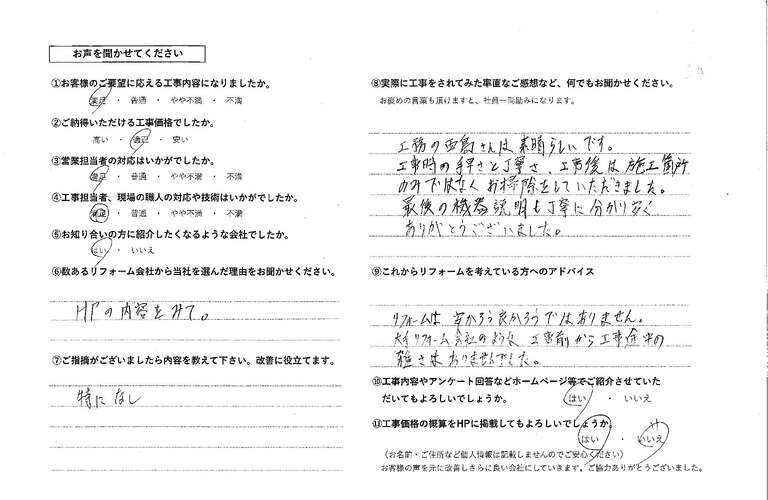 お声を聞かせてください
①お客様のご要望に応える工事内容になりましたか。
満足 ・ 普通 ・ やや不満 ・ 不満
②ご納得いただける工事価格でしたか。
高い ・ 適正 ・ 安い
③営業担当者の対応はいかがでしたか。
満足 ・ 普通 ・ やや不満 ・ 不満
④工事担当者、現場の職人の対応や技術はいかがでしたか。
満足 ・ 普通 ・ やや不満 ・ 不満
⑤お知り合いの方に紹介したくなるような会社でしたか。
はい ・ いいえ
⑥数あるリフォーム会社から当社を選んだ理由をお聞かせください。
HPの内容をみて。
⑦ご指摘がございましたら内容を教えて下さい。改善に役立てます。
特になし
⑧実際に工事をされてみた率直なご感想など、何でもお聞かせください。
お褒めの言葉も頂けますと、社員一同励みになります。
工務の西島さんは素晴らしいです。
工事時の手早さと丁寧さ、工事後は施工箇所
のみではなくお掃除をしていただきました。
最後の機器説明も丁寧に分かり安く
ありがとうございました。
⑨これからリフォームを考えている方へのアドバイス
リフォームは安かろう良かろうではありません。
大手リフォーム会社のような、工事前から工事途中の
雑さはありませんでした。
⑩工事内容やアンケート回答などホームページ等でご紹介させていた
だいてもよろしいでしょうか。 はい ・ いいえ
⑪工事価格の概算をHPに掲載してもよろしいでしょうか。
はい ・ いいえ
（お名前・ご住所など個人情報は記載しませんのでご安心ください）
お客様の声を元に改善しさらに良い会社にしていきます。ご協力ありがとうございました。